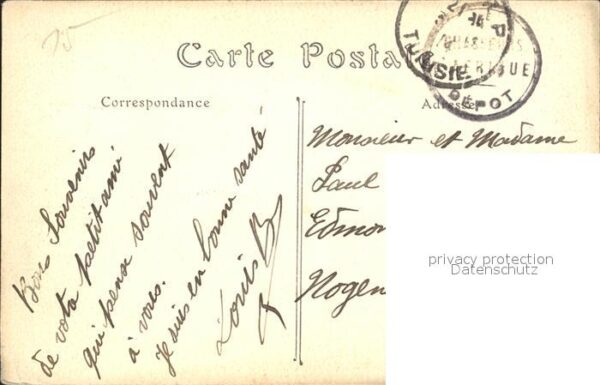 15
Carte Posta
TUNISIE
DÉPOT
Correspondance
Adresse
Bons Souvenirs
de votre petit ami
qui pense souvent
à vous.
Je suis en bonne santé
Louis B
Monsieur et Madame
Paul
Edmon
Nogen
privacy protection
Datenschutz